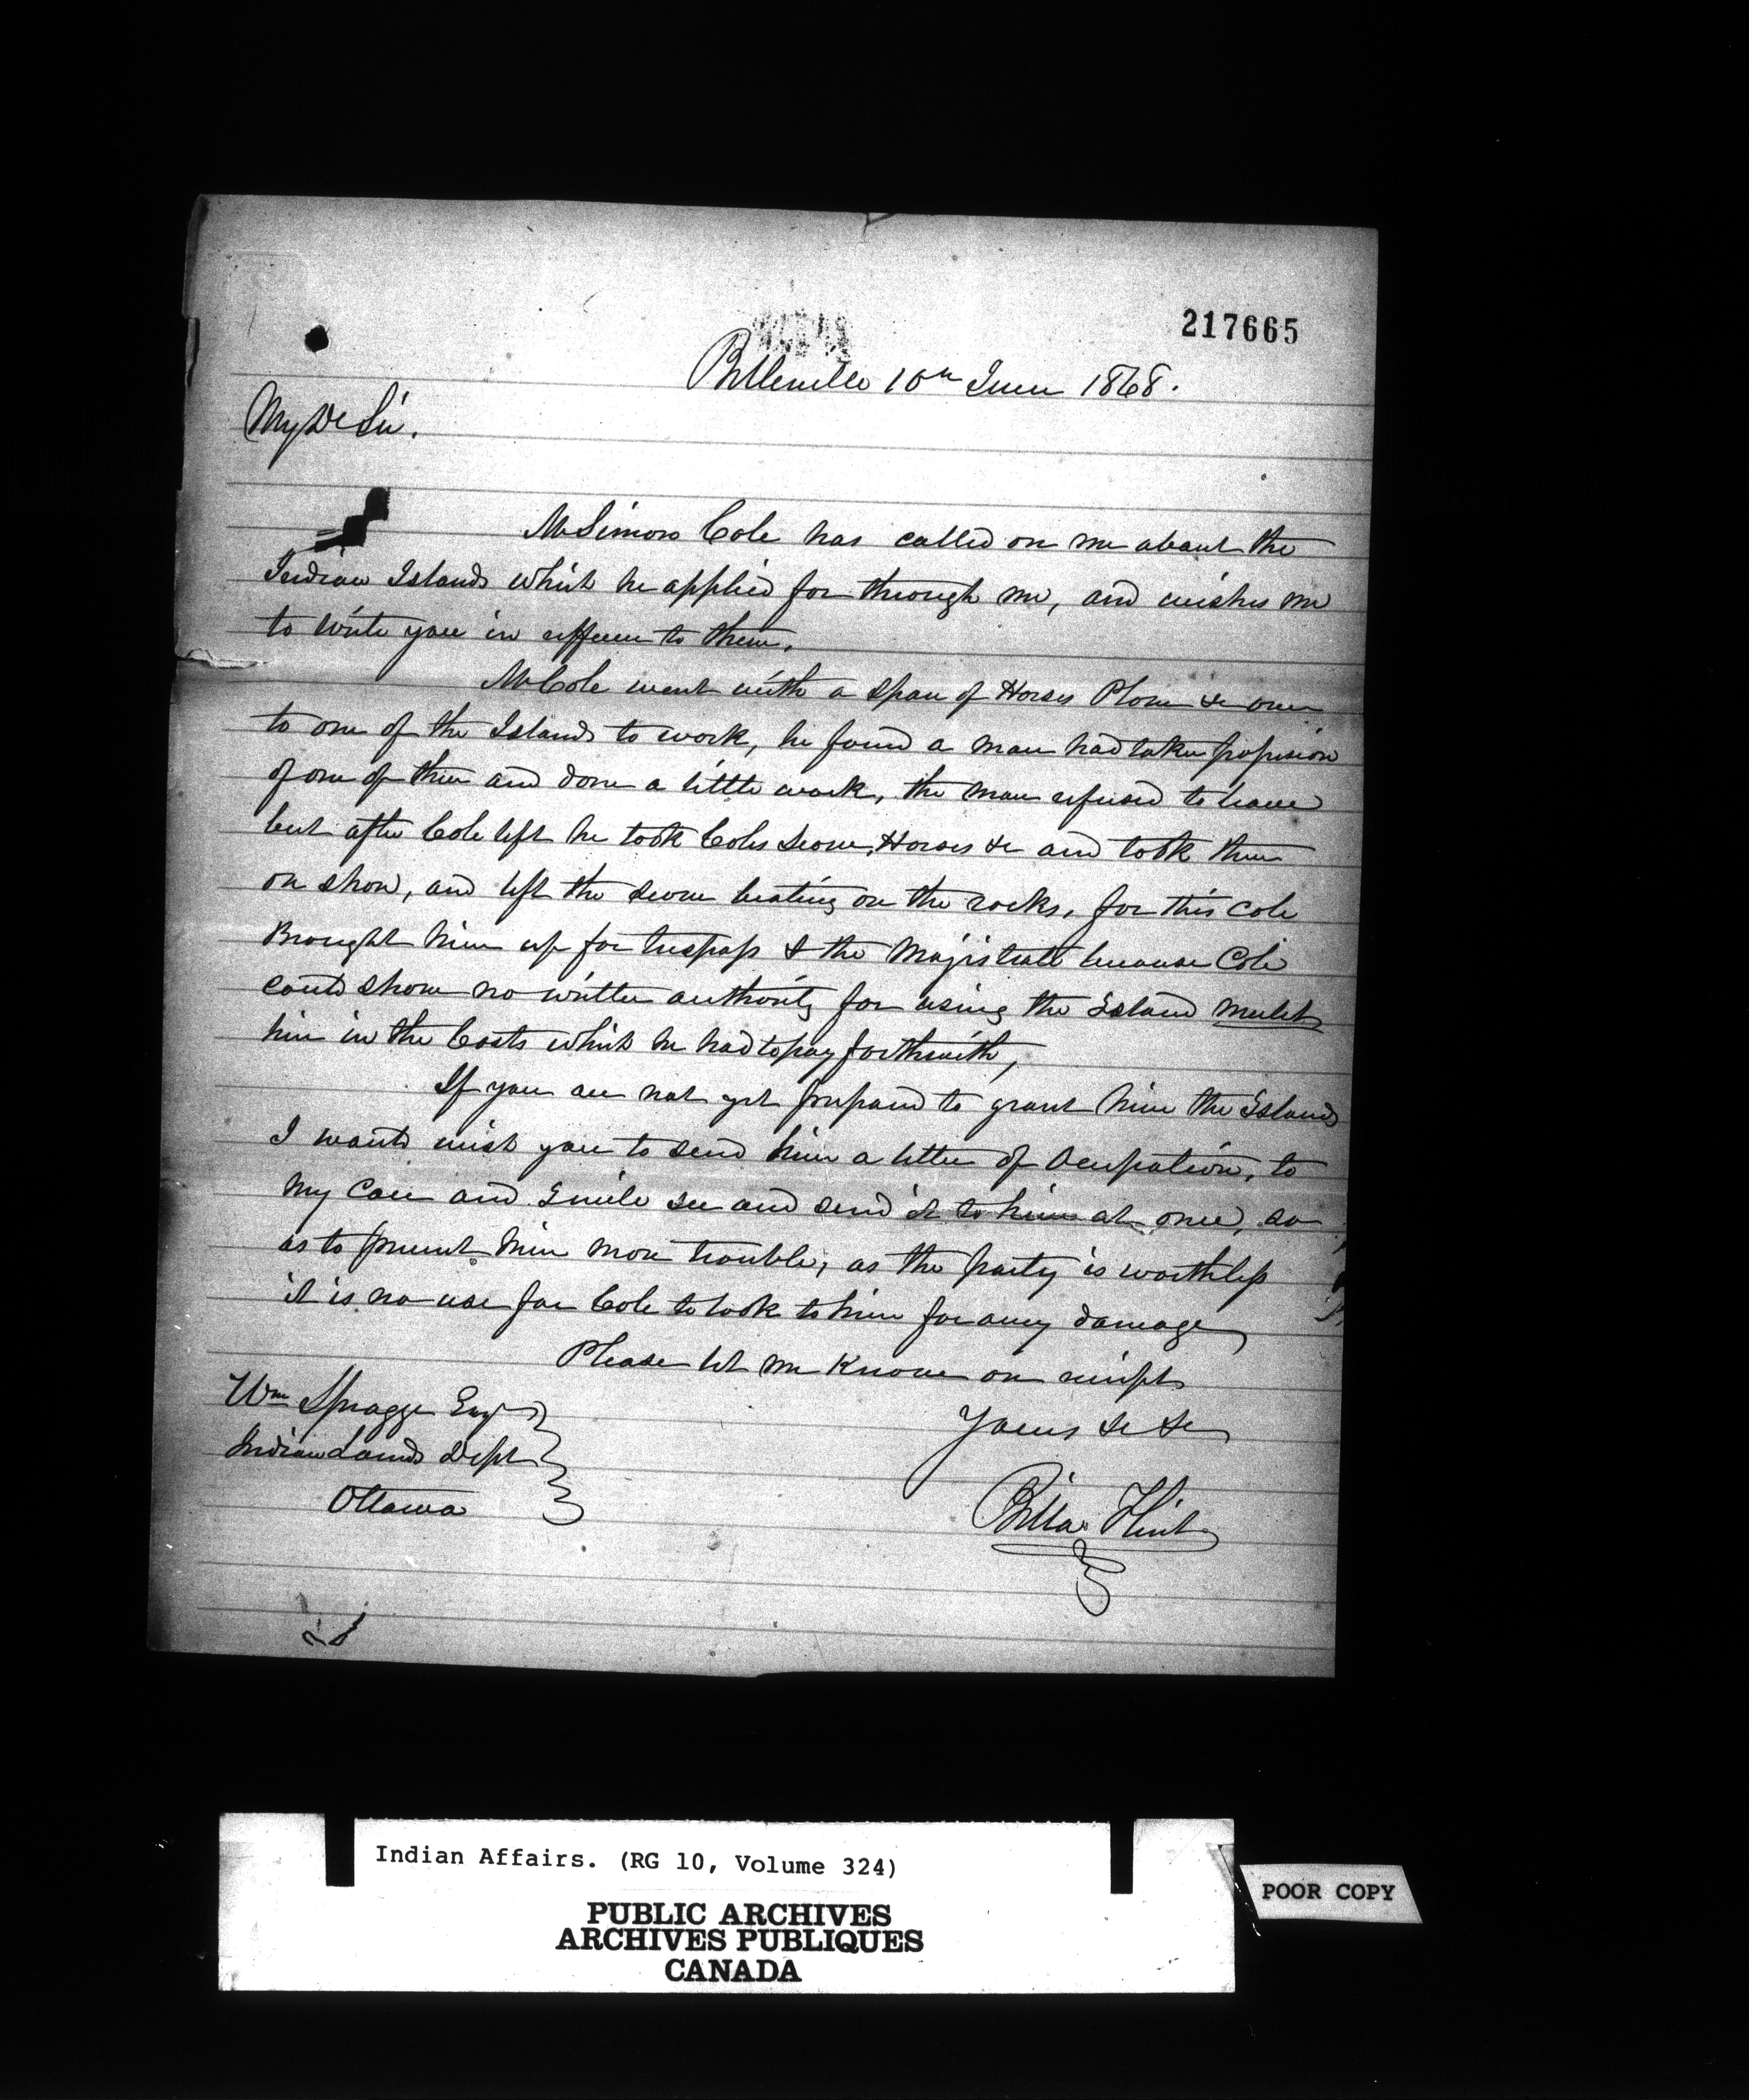 217665
Belleville 10th June 1868.
My Dr Sir.
Mr Simon Cole has called on me about the
Indian Islands which he applied for through me, and wishes me
to write you in reference to them.
Mr Cole went with a span of Horses Plow &c over
to one of the Islands to work, he found a man had taken possession
of one of them and done a little work, the man refused to leave
but after Cole left he took Coles Scow, Horses &c and took them
on shore, and left the scow beating on the rocks, for this Cole
Brought him up for trespass & the Magistrate because Cole
could show no written authority for using the Island mulct
him in the Costs which he had to pay forthwith,
If you are not yet prepared to grant him the Islands
I would wish you to send him a letter of Ocupation, to
my care and I will see and send it to him at once, so
as to prevent him more trouble, as the party is worthless
it is no use for Cole to look to him for any damage
Please let me know on receipt
Wm Spragge Esqr
Yours &c &c
Indian Lands Dept
Ottawa
Billa Flint
Indian Affairs. (RG 10, Volume 324)
POOR COPY
PUBLIC ARCHIVES
ARCHIVES PUBLIQUES
CANADA